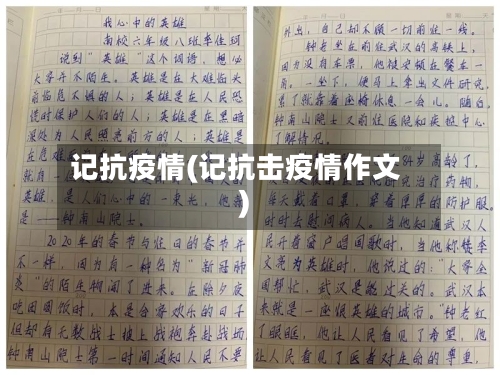 我心中的英雄
南校六年级八班李佳珂
说到“英雄”这个词语，想必
大家并不陌生。英雄是在大难临头
前临危不惧的人；英雄是在人民恐
慌时保护人们的人；英雄是在黑暗
深处为人民照亮前方的人；英雄是
在危难
就自
英雄，是人们心中的一束光，他
是——钟南山院士。
2020年的春节与往日的春节并
不一样，因为有一种名为“新冠肺
炎”的陌生物闯了进来。在除夕夜
吃团圆饭时，本是合家欢乐的日子
但却有无数战士披上战袍奔赴战场
钟南山院士第一时间通知人民不要
外出，自己却不顾一切前往一线。
钟老坐在前往武汉的高铁上，
因为没有车票，他被安顿在餐车一
角。一坐下，便马上拿出文件研究，
累了就靠着座椅休息一会儿。随后，
钟南山院士又前往医院和疾控中心
了解情况。
84岁高龄了，
研究治疗药物，
每天戴着口罩，穿着厚厚的防护服，
时时去慰问病人。当他知道武汉人
民开着窗户唱国歌时，当他称赞李
文亮为英雄时，他说过的：“大家全
国帮忙，武汉是能过关的。武汉本
来就是一座很英雄的城市。”钟老红
了眼眶，他让人民看见了希望，他
让人民看见了医者对生命的尊重，
记抗疫情(记抗击疫情作文
)